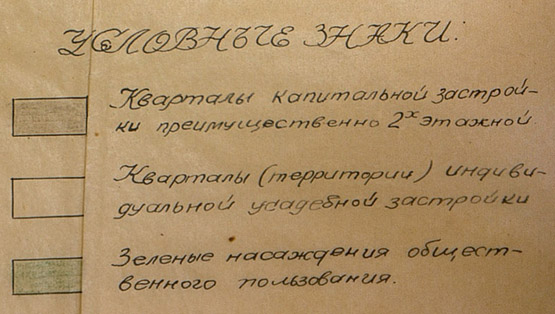 УСЛОВНЫЕ ЗНАКИ:
Кварталы капитальной застрой-
ки преимущественно 2х этажной.
Кварталы (территории) индиви-
дуальной усадебной застройки
Зеленые насаждения общест-
венного пользования.